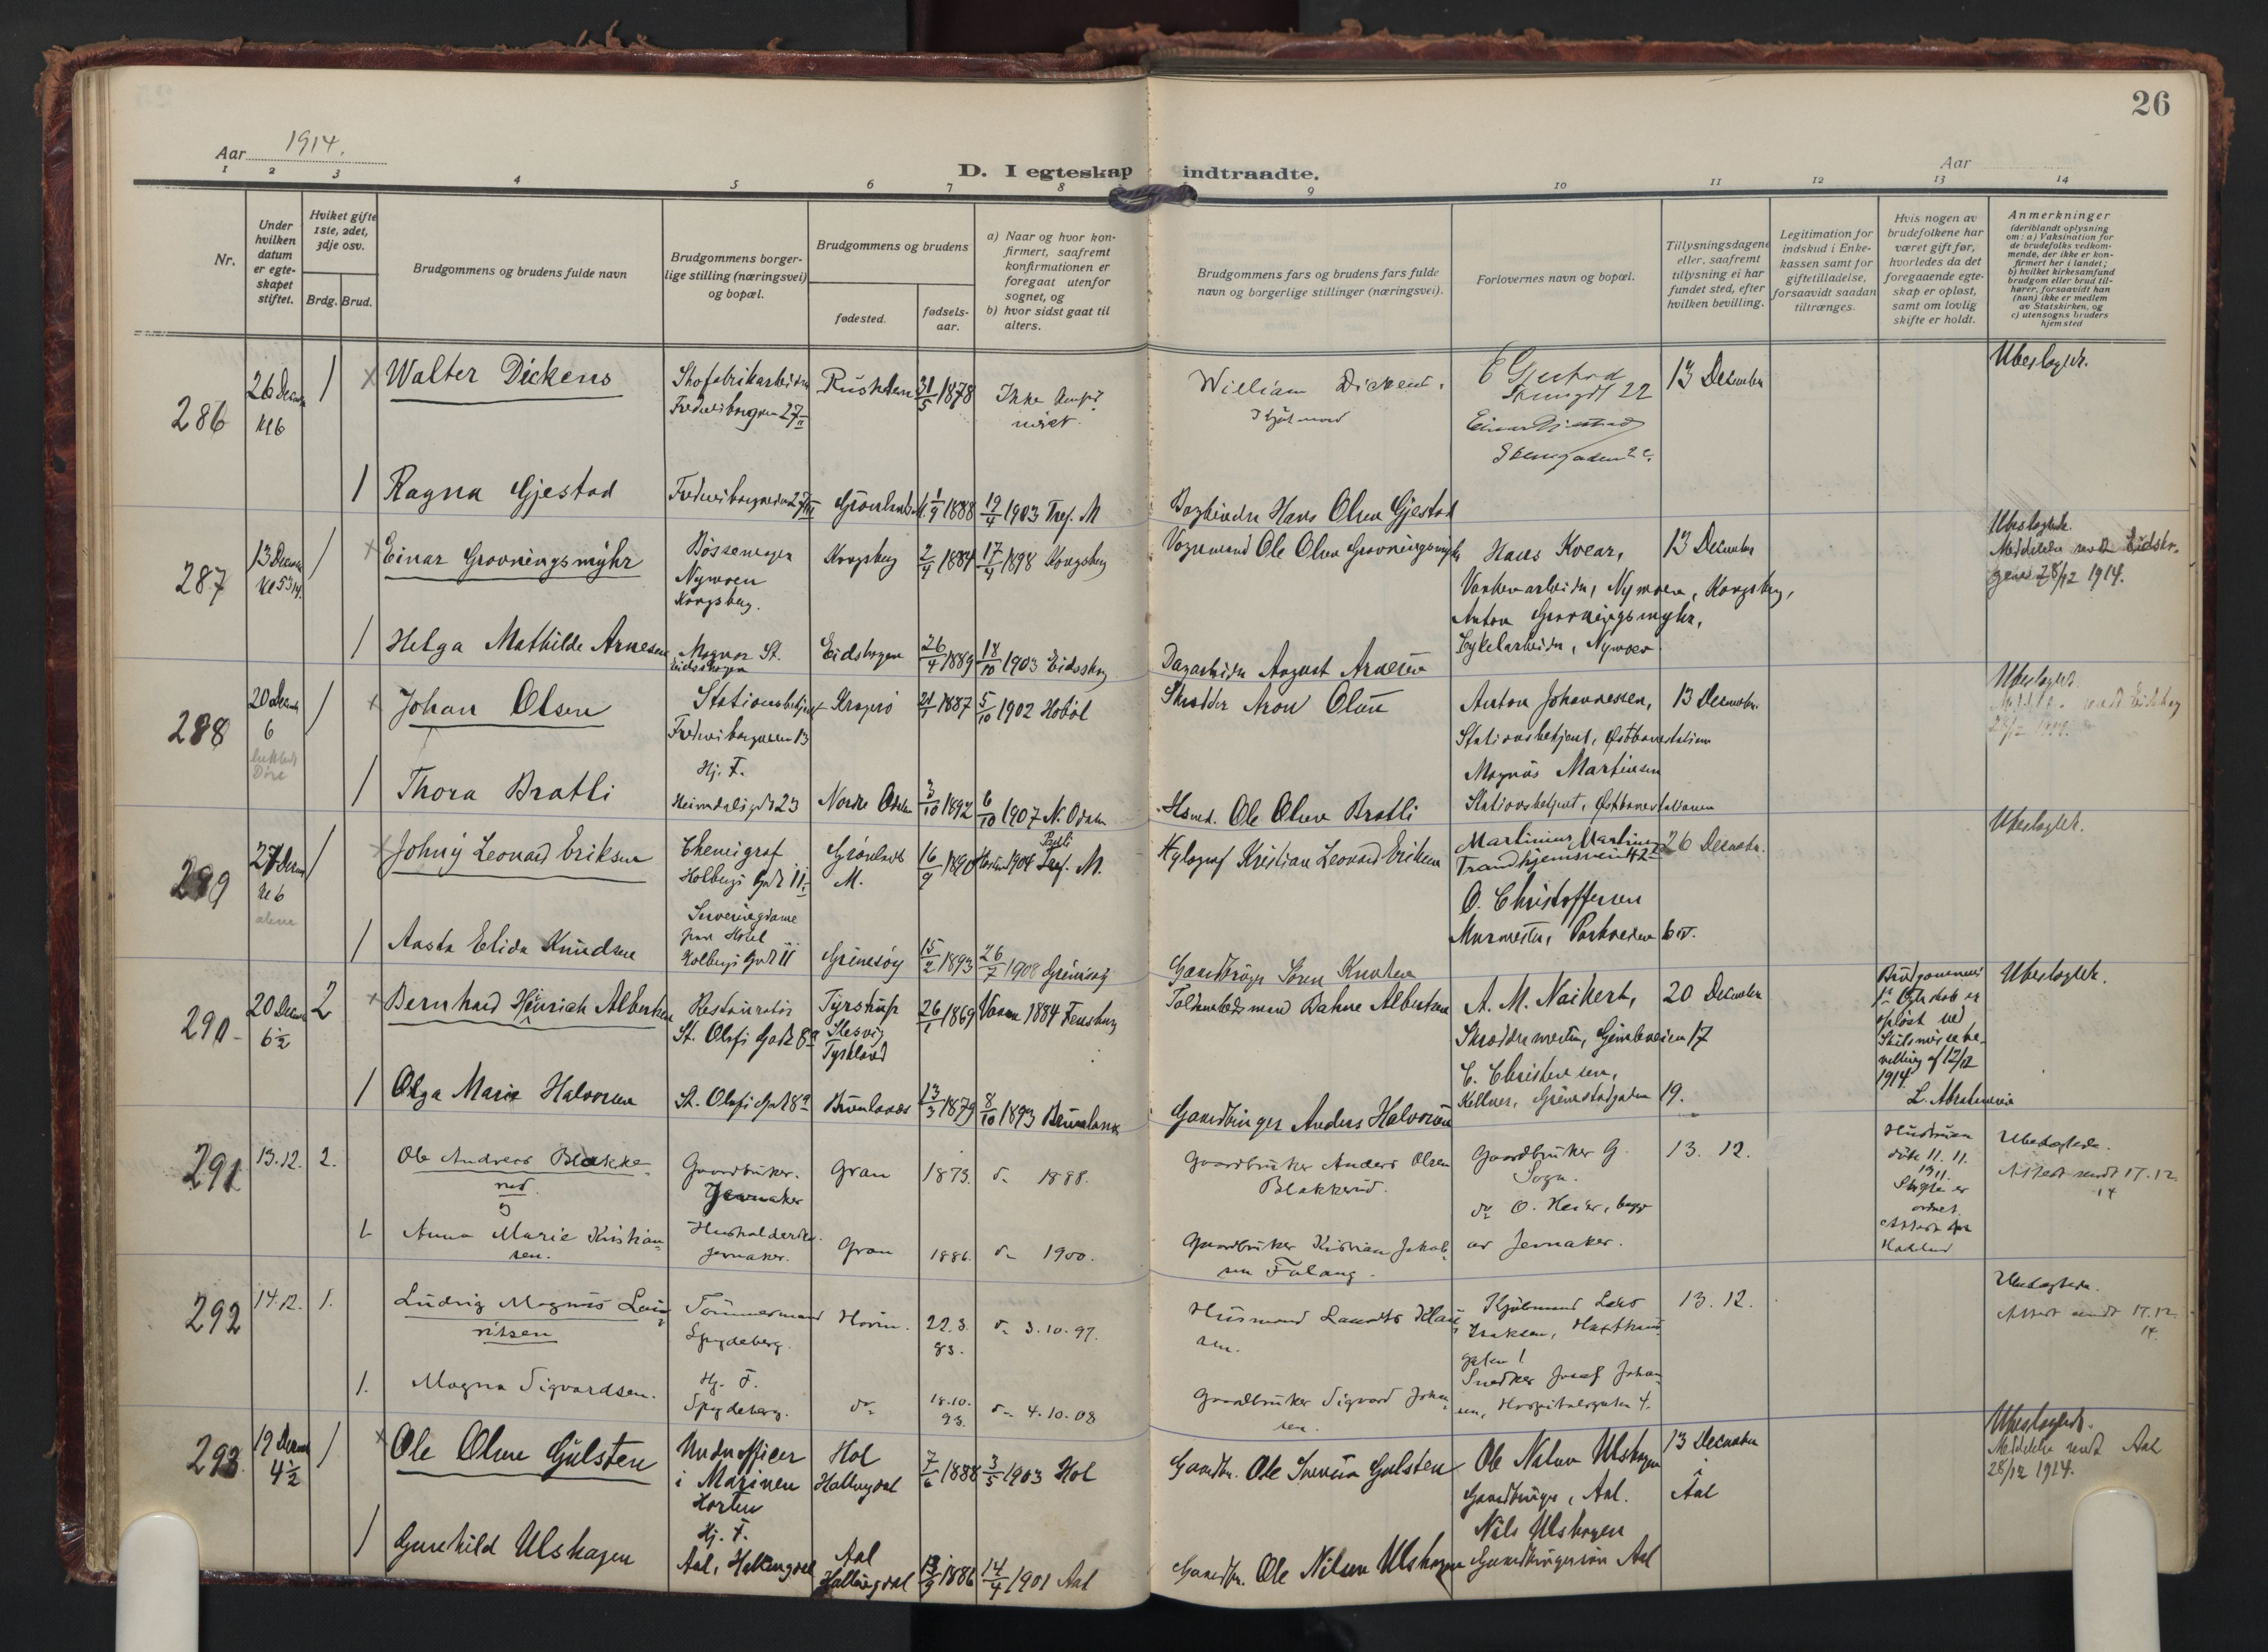 26
Aar 1914.
D. I egteskap indtraadte.
Aar
1 2 3 4 5 6 7 8 9 10 11 12 13 14
Nr.
Under
hvilken
datum
er egte-
skapet
stiftet.
Hvilket gifte
1ste, 2det,
3dje osv.
Brdg. Brud.
Brudgommens og brudens fulde navn
Brudgommens borger-
lige stilling (næringsvei)
og bopæl.
Brudgommens og brudens
fødested.
fødsels-
aar.
a) Naar og hvor kon-
firmert, saafremt
konfirmationen er
foregaat utenfor
sognet, og
b) hvor sidst gaat til
alters.
Brudgommens fars og brudens fars fulde
navn og borgerlige stillinger (næringsvei).
Forlovernes navn og bopæl.
Tillysningsdagene
eller, saafremt
tillysning ei har
fundet sted, efter
hvilken bevilling.
Legitimation for
indskud i Enke-
kassen samt for
giftetilladelse,
forsaavidt saadan
tiltrænges.
Hvis nogen av
brudefolkene har
været gift før,
hvorledes da det
foregaaende egte-
skap er opløst,
samt om lovlig
skifte er holdt.
Anmerkninger
(deriblandt oplysning
om: a) Vaksination for
de brudefolks vedkom-
mende, der ikke er kon-
firmert her i landet;
b) hvilket kirkesamfund
brudgom eller brud til-
hører, forsaavidt han
(hun) ikke er medlem
av Statskirken, og
c) utensogns bruders
hjemsted
286
26 Decem
Kl 6
1
Walter Dickens
Skofabrikarbeider
Fredensborgveien 27 II
Rushden
31/5 1878
Ikke konfir
meret
William Dickens
E Gjestad
22
Einar Gjestad
13 December
Ubeslegtet.
1
Ragna Gjestad
Fredensborgveien 27 III
Grønlands M.
1/9 1888
19/4 1903 Tref. M
Bogbinder Hans Olsen Gjestad
287
13 Decem
Kl 5 3/4.
1
Einar Grovningsmyhr
Bøssemager
Nymoen
Kongsberg.
Kongsberg
2/4 1884
17/4 1898 Kongsberg
Vognmand Ole Olsen Grovningsmyhr
Hans Kvear,
Vaabenarbeider, Nymoen, Kongsberg,
Anton Grovningsmyhr,
Cykelarbeider, Nymoen
13 December
Ubeslegtede.
Meddelelse sendt Eidsko-
gen 28/12 1914.
1
Helga Mathilde Arnesen
Magnor St.
Eidskogen
Eidskogen
26/4 1889
18/10 1903 Eidskog
Dagarbeider August Arnesen
288
20 Decem
6
lukkede
Døre
1
Johan Olsen
Stationsbetjent
Fredensborgveien 13
Kraperø
21/1 1887
5/10 1902 Hobøl
Skrædder Aron Olsen
Anton Johannessen,
Stationsbetjent, Østbanestationen
Magnus Martinsen
Stationsbetjent, Østbanestationen
13 December.
Ubeslegtet.
1
Thora Bratli
Hj. F.
Heimdalsgt 23
Nordre Odalen
3/10 1892
6/10 1907 N. Odalen
Hsmd. Ole Olsen Bratli
289
27 Decem
Kl 6
alene
1
Johny Leonard Eriksen
Chemigraf
Holbergs Gade 11
Grønlands
M.
16/9 1890
Høsten 1904 Tref. M.
Pauli
Xylograf Kristian Leonard Eriksen
Martinius Martinsen
Trondhjemsveien 42
O. Christoffersen
Murmester, Parkveien 6
26 December.
Ubeslegtet.
1
Aasta Elida Knudsen
Serveringsdame
paa Hotel
Holbergs Gade 11
Grimsøy
15/2 1893
26/7 1908 Grimsøy
Gaardbruger Søren Knudsen
290
20 Decem
6 1/2
2
Bernhard Heinrich Albertsen
Restauratør
St. Olafs Gade 8a
Tyrstrup
Slesvig
Tyskland
26/1 1869
Vaaren 1884 Flensburg
Toldembedsmand Bahne Albertsen
A. M. Naikert,
Skræddermester, Gimleveien 17
C. Christensen,
Kellner, Grimstadgaden 19.
20 December
Brudgommens
1ste Egteskab er
opløst ved
Skilsmissebe-
villing af 12/12
1914
L. Abrahamsen
Ubeslegtet.
1
Olga Marie Halvorsen
St. Olafs Gade 8a
Brunlanes
13/3 1879
8/10 1893 Brunlanes
Gaardbruger Anders Halvorsen
291
13.12.
2.
Ole Andreas Blakke-
rud.
Gaardbruker.
Jevnaker
Gran
1873.
do 1888.
Gaardbruker Anders Olsen
Blakkerud.
Gaardbruker G.
Sogn.
do O. Heier, begge
av Jevnaker.
13. 12.
Hustruen
døde 11. 11.
1911
Skifte er
ordnet.
Attest fra
Hadeland
Ubeslegtede.
Attest sendt 17.12.
14
1
Anna Marie Kristian-
sen.
Husholderske.
Jevnaker.
Gran
1886.
do 1900.
Gaardbruker Kristian Jakob-
sen Falang.
292
14.12.
1.
Ludvig Magnus Lau-
ritsen
Tømmermand
Spydeberg.
Hovin.
22.3.
83.
do 3.10.97.
Husmand Laurits Klau-
sen.
Kjøbmand Lars
Isaksen, Hausmanns
gaten 1
Snedker Josef Johan-
sen, Hospitalsgaten 4.
13. 12.
Ubeslegtede.
Attest sendt 17.12.
14.
1.
Magna Sigvardsen.
Hj. F.
Spydeberg.
do
18.10.
93.
do 4.10.08
Gaardbruker Sigvard Johan-
sen.
293
19 Decem
4 1/2
1
Ole Olsen Gulsten
Underofficer
i Marinen
Horten
Hol
Hallingdal
7/6 1888
3/5 1903 Hol
Gaardbr. Ole Svensen Gulsten
Ole Nilsen Ulshagen
Gaardbruger, Aal.
Nils Ulshagen
Gaardbrugersøn Aal
13 December
i
Aal
Ubeslegtede.
Meddelelse sendt Aal
28/12 1914.
1
Gunhild Ulshagen
Hj. F.
Aal, Hallingdal
Aal
Hallingdal
13/9 1886
14/4 1901 Aal
Gaardbr. Ole Nilsen Ulshagen